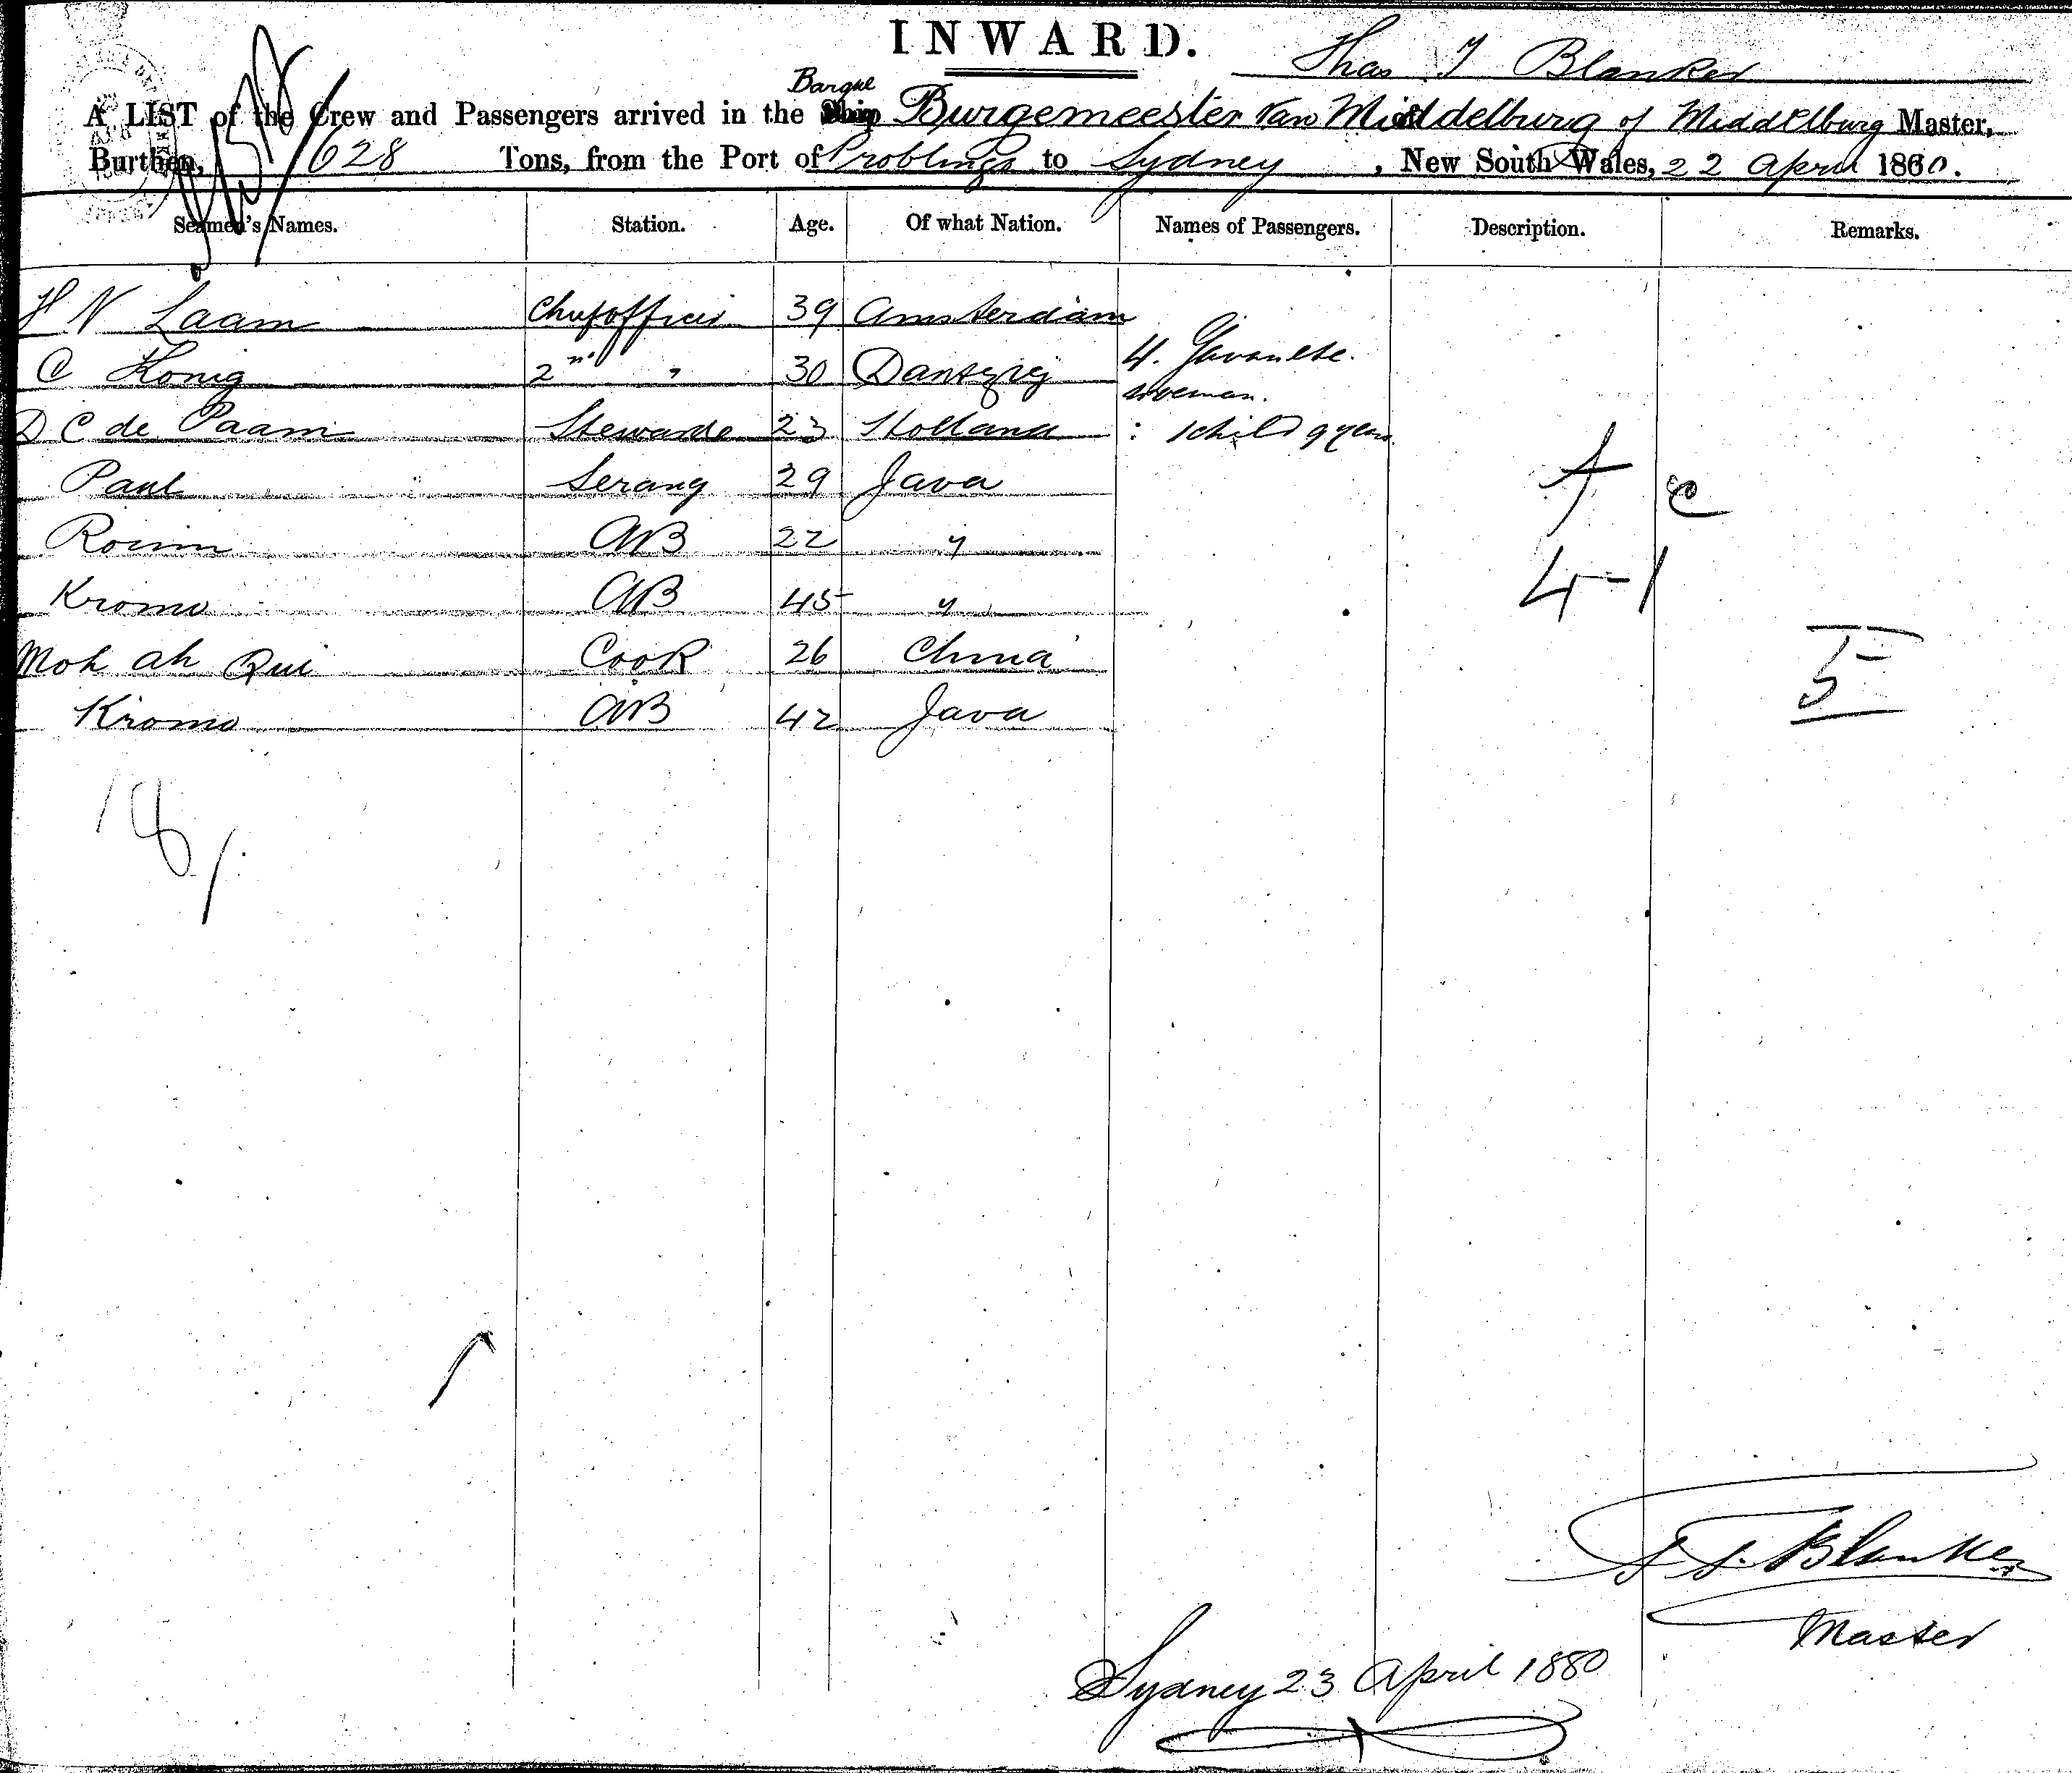 INWARD.
Thos J Blanker
Barque
A LIST of the Crew and Passengers arrived in the Ship Burgemeester Van Middelburg of Middelburg Master,
Burthen, 628 Tons, from the Port of Problingo to Sydney, New South Wales, 22 April 1880.
Seamen's Names. Station. Age. Of what Nation. Names of Passengers. Description. Remarks.
H N Laam Chief officer 39 Amsterdam
C Konig 2nd " 30 Dantzig 4. Javanese.
woeman.
D C de Paam Stewarde 23 Holland : 1 child 9 years
Paul Serang 29 Java A C
Roimn AB 22 "
Kromo AB 45 " 4-1
Moh ah Qui Cook 26 China 5
Kromo AB 42 Java
18/
Blanker
Master
Sydney 23 April 1880